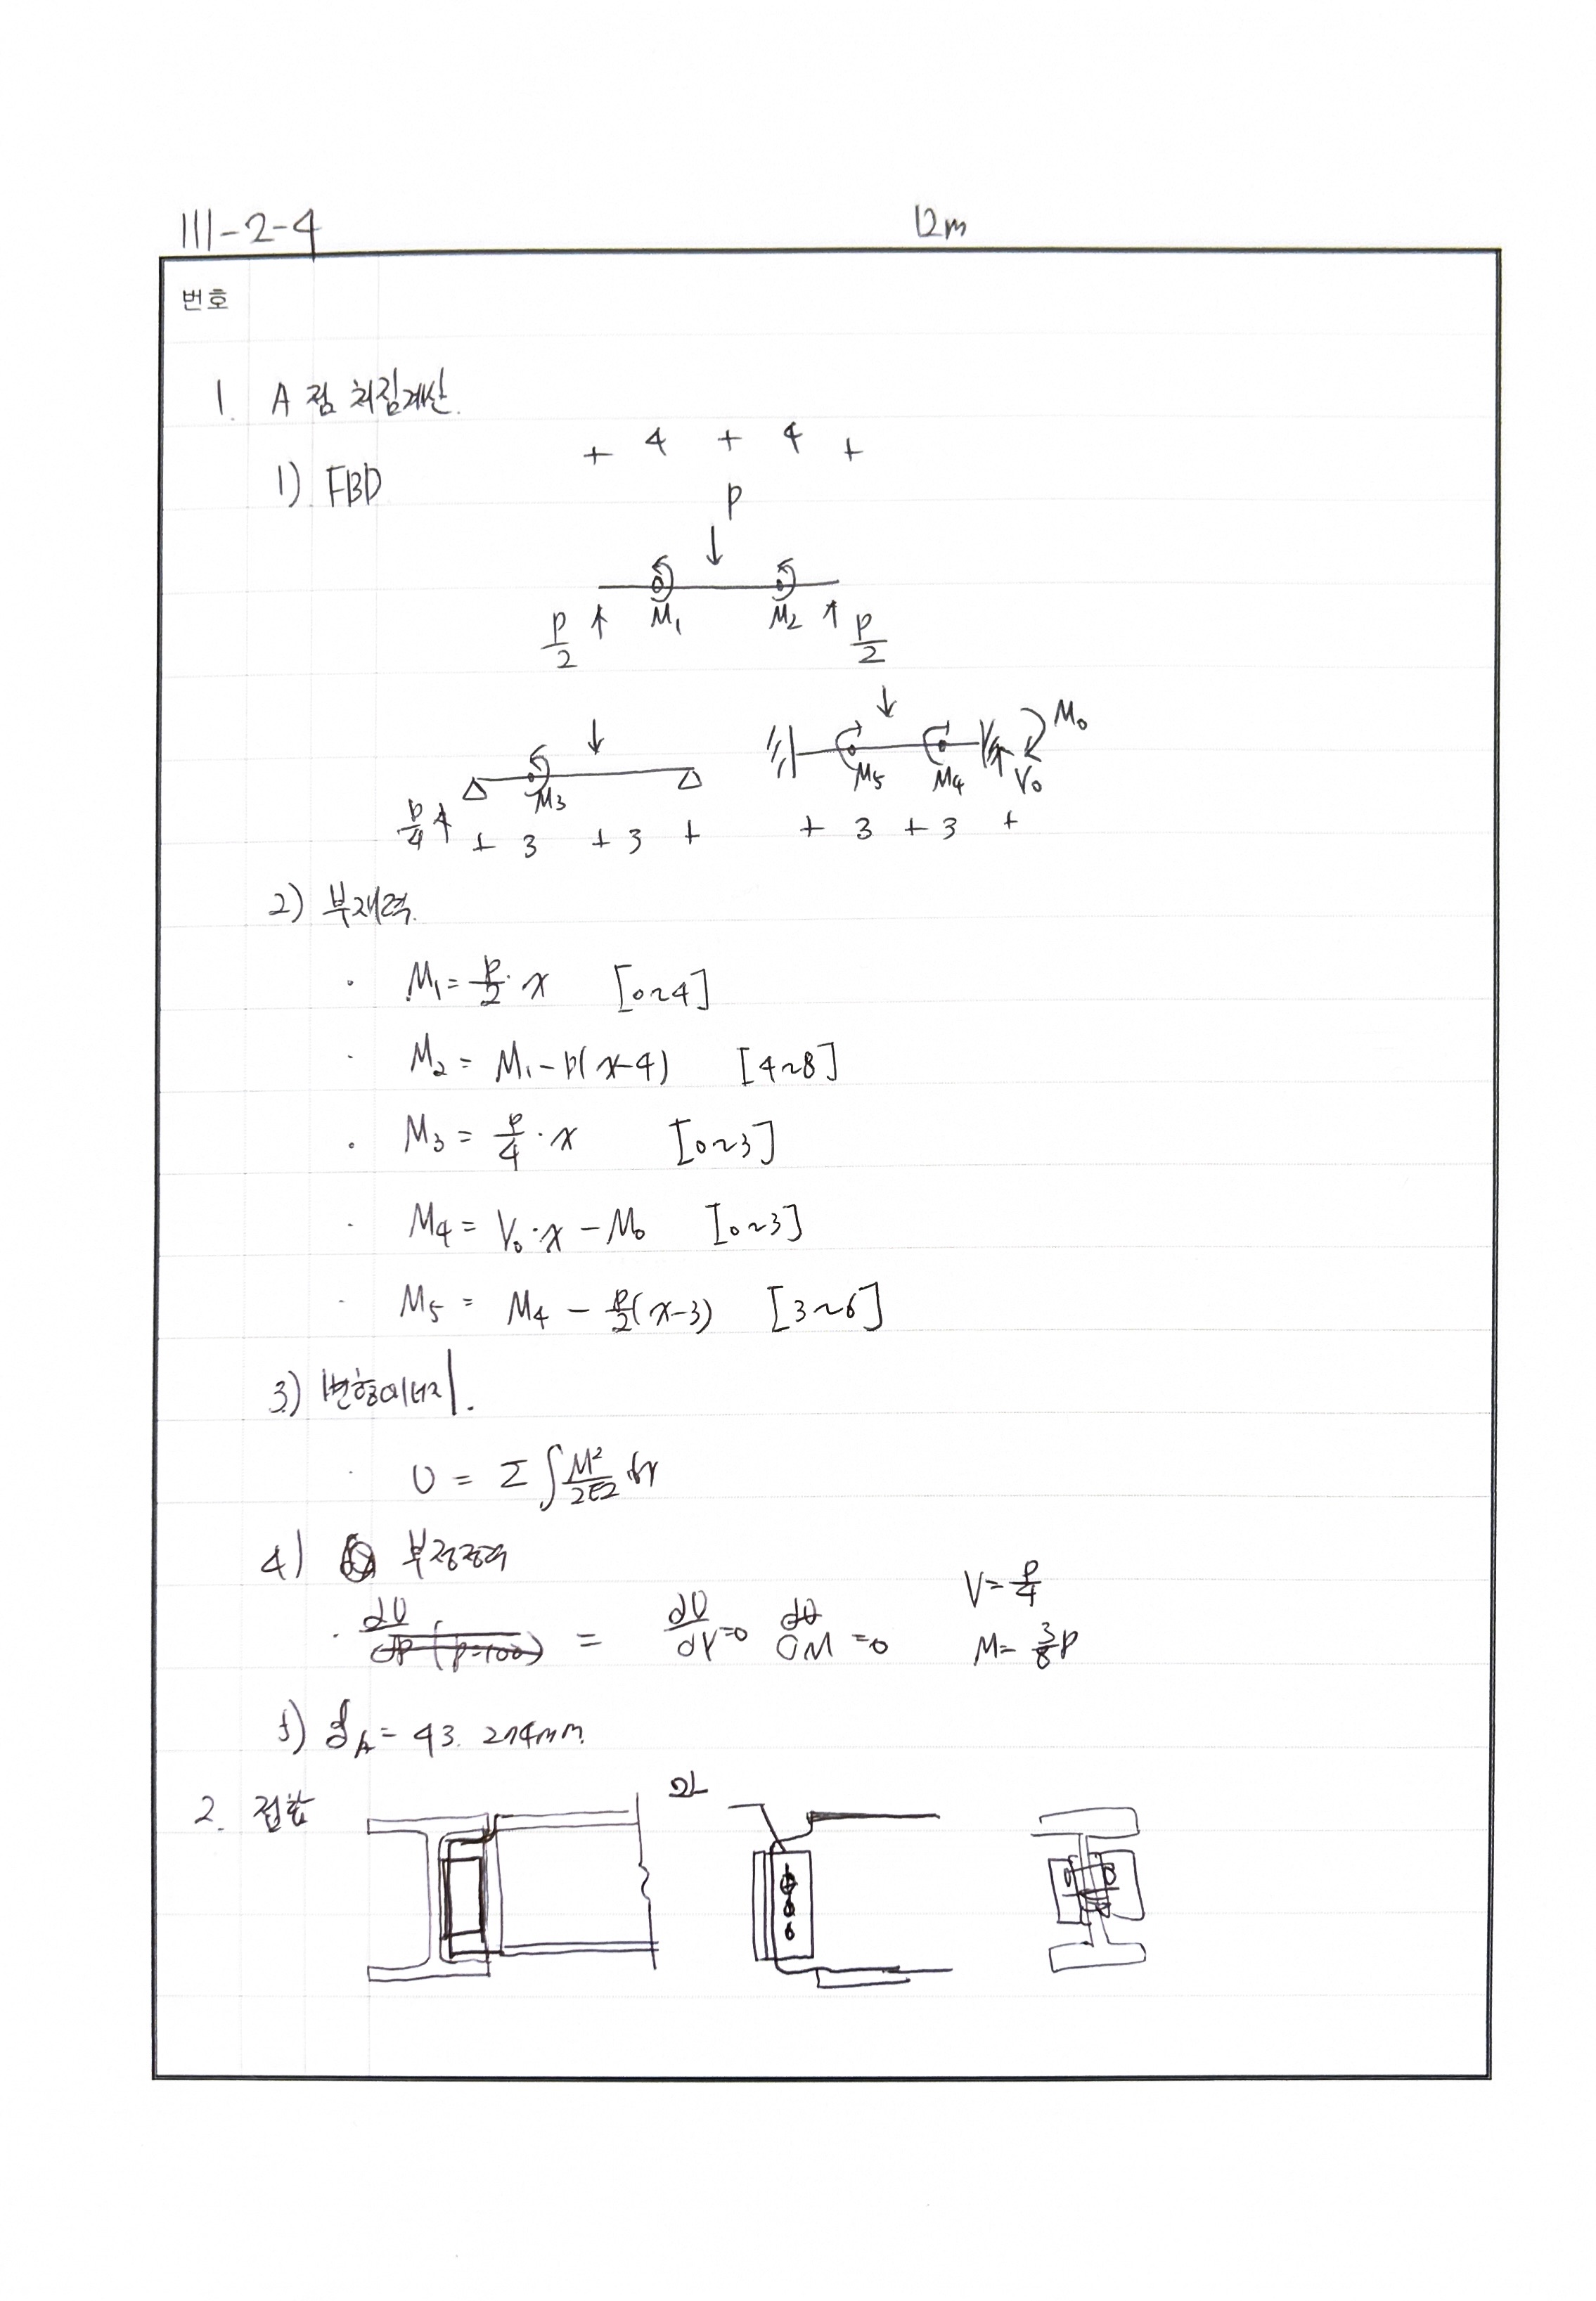 111-2-4
12m
번호
1. A점 처짐계산.
+ 4 + 4 +
1) FBD
P
↓
M₁ M₂
P/2 ↑ ↑ P/2
↓ ↓ M₀
M₃ M₅ M₄ V₀
P/4 ↑ + 3 + 3 + + 3 + 3 +
2) 부재력.
· M₁ = P/2 · x [0~4]
· M₂ = M₁ - P(x-4) [4~8]
· M₃ = P/4 · x [0~3]
· M₄ = V₀ · x - M₀ [0~3]
· M₅ = M₄ - P/2(x-3) [3~6]
3) 변형에너지.
· U = Σ∫M²/2EI dx
4) 부정정력
V = P/4
· = dU/dV = 0 dU/dM = 0
M = 3/8 P
5) δA = 43. 274mm.
2. 접합
2L